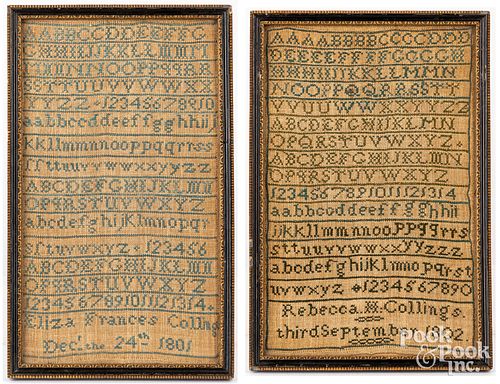 AABBCCDDEEFFG
GHHIIJJKKLLMMN
NNOOPPQQRRS
STTUUVVWWXX
YYZZ 12345678910
aabbccddeeffgghhiij
kkllmmnnooppqqrrss
ttuuvvwwxxyyzz
ABCDEFGHIJKLMN
OPQRSTUVWXYZ
abcdefghijklmnopq
rstuvwxyz 123456
ABCDEFGHIJKLMN
OPQRSTUVWXYZ
1234567891011121314
Eliza Frances Collins
Decr. the 24th 1801
AAAABBBBCCCCDDD
NOOPPQQRRSSTT
UUVVWWXXYYZZ
ABCDEFGHIJKLMN
OPQRSTUVWXYZ
ABCDEFGHIJKLMN
OPQRSTUVWXYZ
1234567891011121314
aabbccddeeffgghhii
jjkkllmmnnooppqqrrs
sttuuvvwwxxyyzz
abcdefghijklmnopqrst
uvwxyz 1234567890
Rebecca Collings
third September 1802
Pook & Pook Inc.